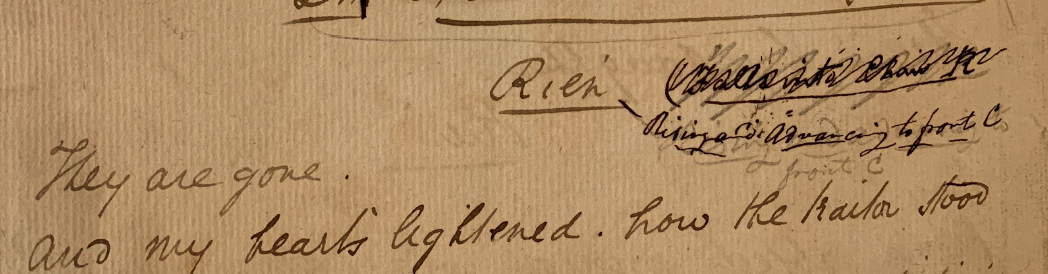 Rien
Rising and advancing to front C
front C
They are gone.
and my heart's lightened. how the traitor stood